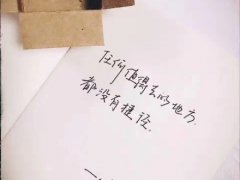 任何值得去的地方
都没有捷径.